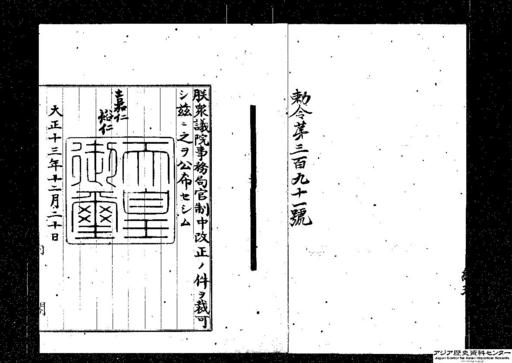 勅令第三百九十一號
朕衆議院事務局官制中改正ノ件ヲ裁可
シ茲ニ之ヲ公布セシム
嘉仁
裕仁
天皇
御璽
大正十三年十二月二十日
アジア歴史資料センター
Japan Center for Asian Historical Records